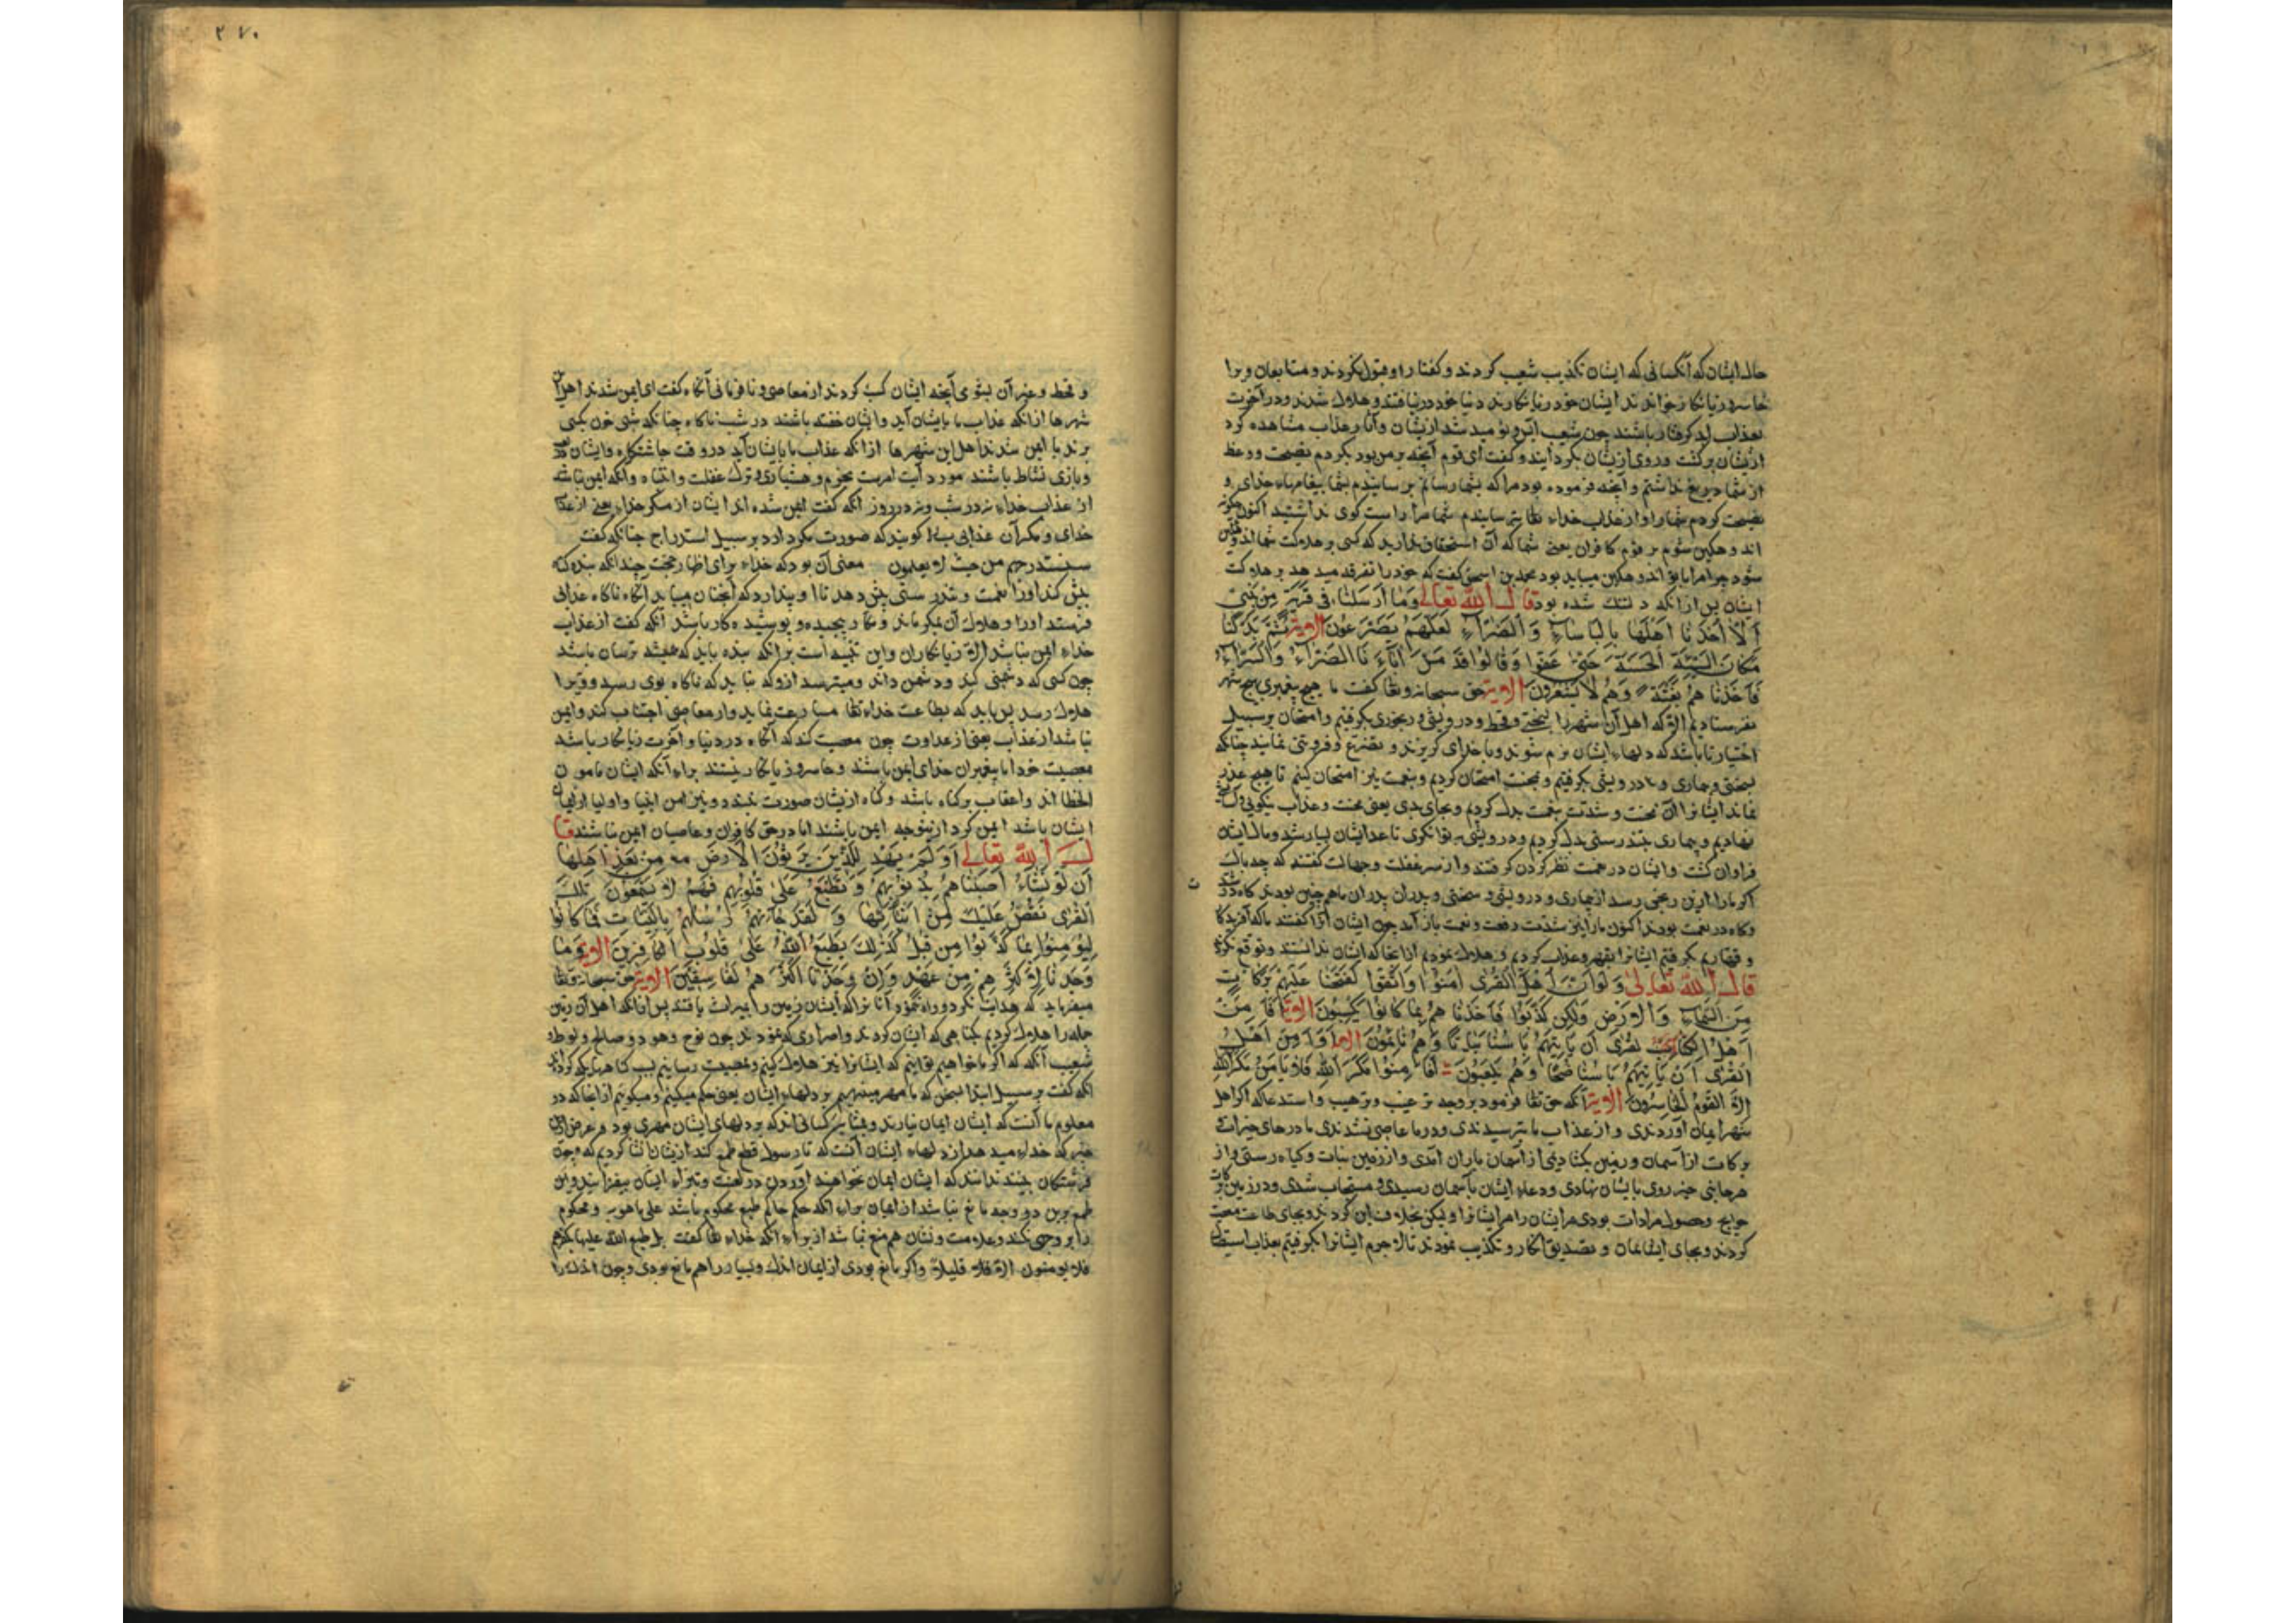 حال ایشان که آنکسانی که ایشان تکذیب شعیب کردند و گفتار او قبول نکردند و متابعان ویرا
خاسر و زیانکار خواندند ایشان خود زیانکارند دنیا خود درنیافتند و هلاک شدند و در آخرت
بعذاب ابد گرفتار باشند چون شعیب ازیشان نومید شد ازیشان و آثار عذاب مشاهده کرد
ازیشان برگشت و روی ازیشان بگردانید و گفت ای قوم آنچه بر من بود بکردم نصیحت و وعظ
از شما دریغ نداشتم و آنچه فرموده بود مرا که بشما رسانم برسانیدم بشما پیغامهاء خدای و
نصیحت کردم شما را و از عذاب خداء تعا بترسانیدم شما مرا راست کوی نداشتید اکنون چکونه
اندوهکین شوم بر قوم کافران یعنی شما که آن استحقاق ندارید که کسی بر هلاکت شما
شود چرا مرا باید اندوهکین میباید بود محمد بن اسحق گفت که خود را تعزیه میدهد بر هلاکت
ایشان پس از آنکه دلتنک شده بود قال الله تعالی وَمَا أَرْسَلْنَا فِی قَرْیَةٍ مِن نَبِیٍّ
اِلَّا أَخَذْنَا أَهْلَهَا بِالْبَأْسَاءِ وَالضَّرَّاءِ لَعَلَّهُمْ یَضَّرَّعُونَ الایة ثُمَّ بَدَّلْنَا
مَکَانَ السَّیِّئَةِ الْحَسَنَةَ حَتَّی عَفَوا وَقَالُوا قَدْ مَسَّ آبَاءَنَا الضَّرَّاءُ وَالسَّرَّاءُ
فَأَخَذْنَاهُمْ بَغْتَةً وَهُمْ لَا یَشْعُرُونَ الایة حق سبحانه وتعا گفت ما هیچ پیغمبری بهیچ شهر
نفرستادیم الا که اهل آن شهر را بسختی و قحط و درویشی و رنجوری بگرفتیم و امتحان بر سبیل
اختیار تا باشد که دلهاء ایشان نرم شود و با خدای گریزند و تضرع و فروتنی نمایند چنانکه
بسختی و بیماری و درویشی بگرفتیم و بمحنت امتحان کردیم و بنعمت نیز امتحان کنیم تا هیچ عذر
نماند ایشانرا آن محنت و شدت بنعمت بدل کردیم و بجای بدی یعنی محنت و عذاب نیکویی
نهادیم و بیماری بتندرستی بدل کردیم و درویشی بتوانکری تا عدد ایشان بسیار شد و مال ایشان
فراوان گشت و ایشان در نعمت نظر کردن گرفتند و از سر غفلت و جهالت گفتند که چه باک
اکر ما را ازین رنجی رسد از بیماری و درویشی و سختی و پدران پدران ما همچنین بودند کاه در
و کاه در نعمت بودند اکنون ما را نیز شدت رفعت و نعمت باز آمد چون ایشان این گفتند ما که آفریدکا
و قهاریم بگرفتیم ایشانرا بقهر و عذاب کردیم و هلاک نمودیم از انجا که ایشان ندانستند و توقع نکردند
قال الله تعالی وَلَوْ أَنَّ أَهْلَ الْقُرَی آمَنُوا وَاتَّقَوْا لَفَتَحْنَا عَلَیْهِمْ بَرَکَاتٍ
مِنَ السَّمَاءِ وَالْأَرْضِ وَلَکِن کَذَّبُوا فَأَخَذْنَاهُمْ بِمَا کَانُوا یَکْسِبُونَ الایة أَفَأَمِنَ
أَهْلُ الْقُرَی أَن یَأْتِیَهُمْ بَأْسُنَا بَیَاتًا وَهُمْ نَائِمُونَ أَوَأَمِنَ أَهْلُ
الْقُرَی أَن یَأْتِیَهُمْ بَأْسُنَا ضُحًی وَهُمْ یَلْعَبُونَ أَفَأَمِنُوا مَکْرَ اللَّهِ فَلَا یَأْمَنُ مَکْرَ اللَّهِ
إِلَّا الْقَوْمُ الْخَاسِرُونَ الایة آنکه حق تعا فرمود بر وجه ترغیب و ترهیب و استدعا که اگر اهل
شهر ایمان آوردندی و از عذاب ما بترسیدندی و در ما عاصی نشدندی ما درهای خیرات
برکات از آسمان و زمین بگشادیمی از آسمان باران آمدی و از زمین نبات و کیاه رستی و از
هر جانبی خیر روی بایشان نهادی و دعاء ایشان بآسمان رسیدی و مستجاب شدی و در زمین برکات
حوایج و حصول مرادات بودی مر ایشان را مر ایشانرا و لیکن بخلاف این کردند و بجای طاعت معصیت
کردند و بجای ایمان و تصدیق انکار و تکذیب نمودند تا لاجرم ایشانرا بگرفتیم بعذاب استیصال
۲۷۰
و قحط و غیر آن بشومی آنچه ایشان کسب کردند از معاصی و نافرمانی آنکاه گفت ای ایمن شدند اهل آن
شهرها از آنکه عذاب ما بایشان آید و ایشان خفته باشند در شب ناکاه چنانکه شبی خون کسی
برند یا ایمن شدند اهل این شهرها از آنکه عذاب ما بایشان آید در وقت چاشتکاه و ایشان
و بازی نشاط باشند مورد آیت امرست بحزم و هشیاری و ترک غفلت و انتباه و آنکه ایمن نباشند
از عذاب خداء نه در شب و نه در روز آنکه گفت ایمن شده اند ایشان از مکر خداء یعنی از عذاب
خدای و مکر آن عذابی باشد کویند که صورت مکر دارد بر سبیل استدراج چنانکه گفت
سنستدرجهم من حیث لا یعلمون معنی آن بود که خداء برای اظهار حجت چندانکه بنده کناه
بیش کند او را نعمت و تندرستی بیش دهد تا او پندارد که آنچنان میباید آنکاه ناکاه عذابی
فرستد او را و هلاک آن بمکر ماند و بکار پیچیده و پوشیده کار باشد آنکه گفت از عذاب
خداء ایمن نباشد الا زیانکاران و این تنبیه است برانکه بنده باید که همیشه ترسان باشد
چون کسی که دشمنی کند و دشمن داند و میترسد ازو که نباید که ناکاه بوی رسد و ویرا
هلاک رسد پس باید که بطاعت خداء تعا مسارعت نماید و از معاصی اجتناب کند و ایمن
نباشد از عذاب یعنی از عداوت چون معصیت کند که آنکاه در دنیا و آخرت زیانکار باشد
معصیت خود اما پیغمبران خدای ایمن باشند و خاسر و زیانکار نیستند براء آنکه ایشان مامون
الخطا اند و اعقاب بر کناه باشد و کناه ازیشان صورت نبندد و نیز امن انبیا و اولیا
ایشان باشد ایمن کرد ازینوجه ایمن باشند اما در حق کافران و عاصیان ایمن نباشند قا
ل الله تعالی أَوَلَمْ یَهْدِ لِلَّذِینَ یَرِثُونَ الْأَرْضَ مِن بَعْدِ أَهْلِهَا
أَن لَوْ نَشَاءُ أَصَبْنَاهُمْ بِذُنُوبِهِمْ وَنَطْبَعُ عَلَی قُلُوبِهِمْ فَهُمْ لَا یَسْمَعُونَ تِلْکَ
الْقُرَی نَقُصُّ عَلَیْکَ مِنْ أَنْبَائِهَا وَلَقَدْ جَاءَتْهُمْ رُسُلُهُمْ بِالْبَیِّنَاتِ فَمَا کَانُوا
لِیُؤْمِنُوا بِمَا کَذَّبُوا مِن قَبْلُ کَذَلِکَ یَطْبَعُ اللَّهُ عَلَی قُلُوبِ الْکَافِرِینَ الایة وَمَا
وَجَدْنَا لِأَکْثَرِهِمْ مِنْ عَهْدٍ وَإِنْ وَجَدْنَا أَکْثَرَهُمْ لَفَاسِقِینَ الایة حق سبحانه وتعا
میفرماید که هدایت نکرد و راه ننمود آنانرا که ایشان زمین را بمیراث یافتند پس از آنکه اهل آن زمین
جمله را هلاک کردیم بکناهی که ایشان کردند و اصراری که نمودند چون نوح و هود و صالح و لوط و
شعیب آنکه که اگر ما خواهیم توانیم که ایشانرا نیز هلاک کنیم و مصیبت رسانیم بسبب کناهها که کرده اند
آنکه گفت بر سبیل ابتدا سخن که ما مهر مینهیم بر دلهاء ایشان یعنی حکم میکنیم و میکوییم از انجا که در
معلوم ما آنست که ایشان ایمان نیارند و بمثابت کسانی اند که بر دلهای ایشان مهری بود و غرض ازین
خبر که خداء میدهد از دلهاء ایشان آنست که تا رسول قطع طمع کند ازیشان تا کردیم که چون
فرشتکان ببینند بدانند که ایشان ایمان نخواهند آوردن در لعنت و تبراء ایشان بیفزایند و این
طبع برین دو وجه مانع نباشد از ایمان براء آنکه حکم حاکم طبع محکوم باشد علی ما هو به و محکوم
را بر وجهی نکند و علامت و نشان هم منع نباشد از براء آنکه خداء تعا گفت بل طبع الله علیها بکفرهم
فلا یومنون الا قلیلا و اگر مانع بودی از ایمان اندک و بسیار را هم مانع بودی و چون اندک را